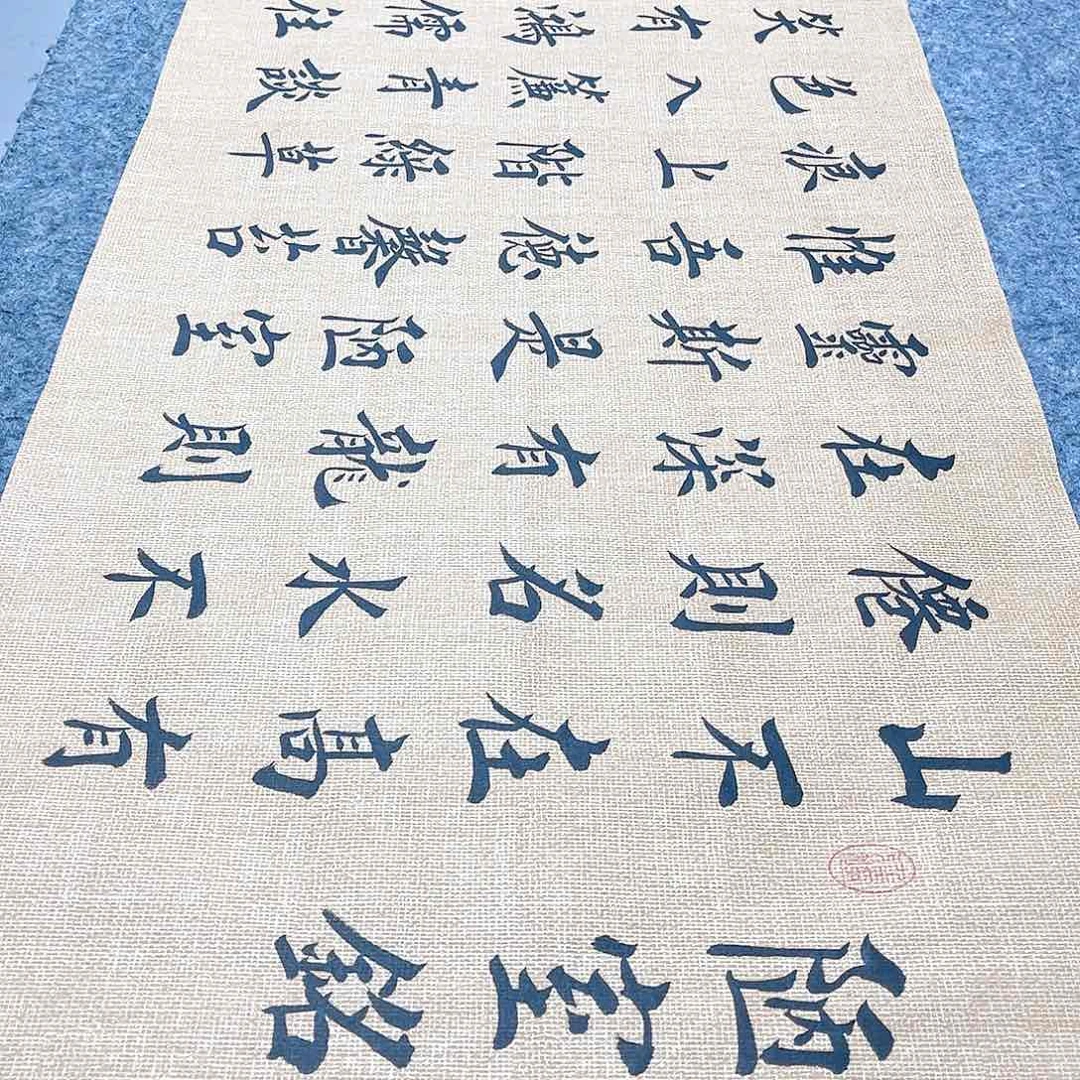 陋室銘
山不在高有
僊則名水不
在深有龍則
靈斯是陋室
惟吾德馨苔
痕上階綠草
色入簾青談
笑有鴻儒往